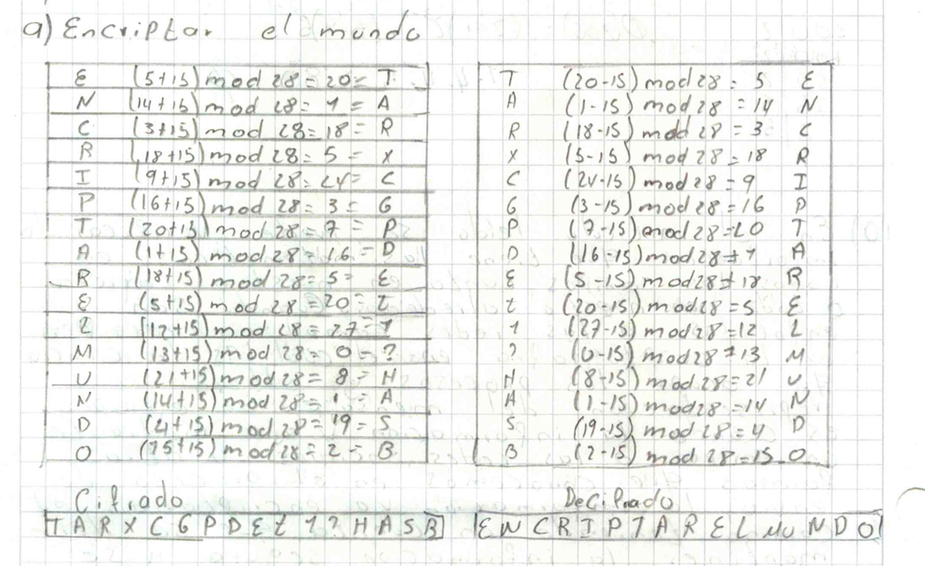 a) Encriptar el mundo
E (5+15) mod 28 = 20 = T
N (14+15) mod 28 = 1 = A
C (3+15) mod 28 = 18 = R
R (18+15) mod 28 = 5 = X
I (9+15) mod 28 = 24 = C
P (16+15) mod 28 = 3 = G
T (20+15) mod 28 = 7 = P
A (1+15) mod 28 = 16 = D
R (18+15) mod 28 = 5 = E
E (5+15) mod 28 = 20 = Z
L (12+15) mod 28 = 27 = 1
M (13+15) mod 28 = 0 = ?
U (21+15) mod 28 = 8 = H
N (14+15) mod 28 = 1 = A
D (4+15) mod 28 = 19 = S
O (15+15) mod 28 = 2 = B
T (20-15) mod 28 = 5 E
A (1-15) mod 28 = 14 N
R (18-15) mod 28 = 3 C
X (5-15) mod 28 = 18 R
C (24-15) mod 28 = 9 I
G (3-15) mod 28 = 16 P
P (7-15) mod 28 = 20 T
D (16-15) mod 28 = 1 A
E (5-15) mod 28 = 18 R
Z (20-15) mod 28 = 5 E
1 (27-15) mod 28 = 12 L
? (0-15) mod 28 = 13 M
H (8-15) mod 28 = 21 U
A (1-15) mod 28 = 14 N
S (19-15) mod 28 = 4 D
B (2-15) mod 28 = 15 O
Cifrado
T A R X C G P D E Z 1 ? H A S B
Decifrado
E N C R I P T A R E L M U N D O